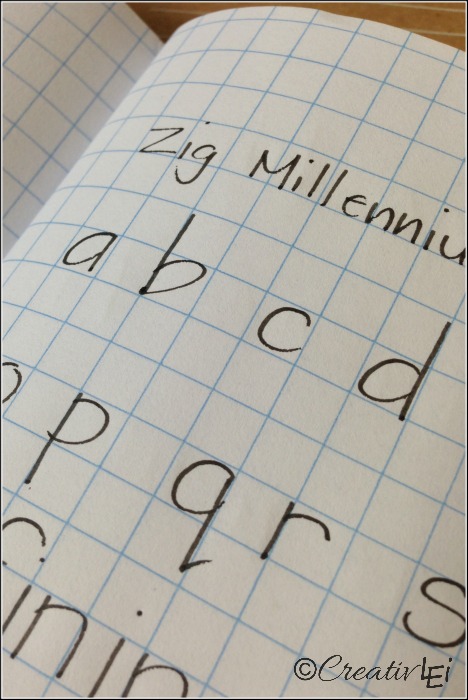 Zig Millenniu
a b c d
o p q r s
©CreativLEi